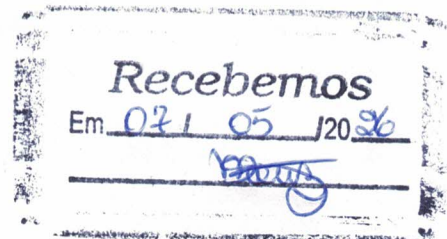 Recebemos
Em 07 / 05 /20 26